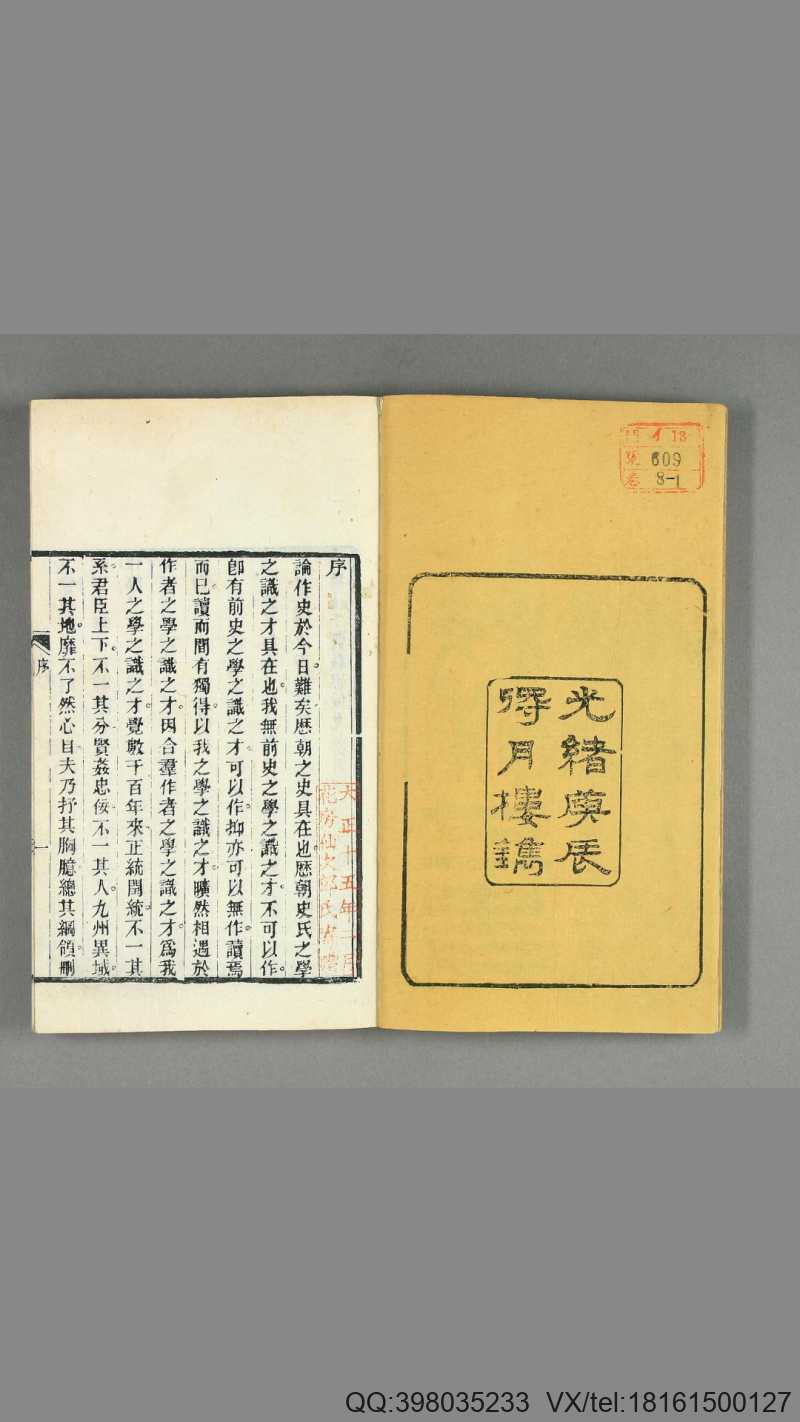 門 イ 13
號 609
卷 8-1
光緒庚辰
得月樓鐫
序
論作史於今日。難矣歷朝之史具在也歷朝史氏之學
之識之才具在也。我無前史之學之識之才。不可以作。
卽有前史之學之識之才。可以作。抑亦可以無作。讀焉
而已。讀而間有獨得。以我之學之識之才。曠然相遇於
作者之學之識之才。因合羣作者之學之識之才。爲我
一人之學之識之才。覺數千百年來。正統閏統。不一其
系。君臣上下。不一其分。賢姦忠佞。不一其人。九州異域。
不一其地。靡不了然心目。夫乃抒其胸臆。總其綱領。刪
序
一
大正十五年一月
QQ:398035233 VX/tel:18161500127